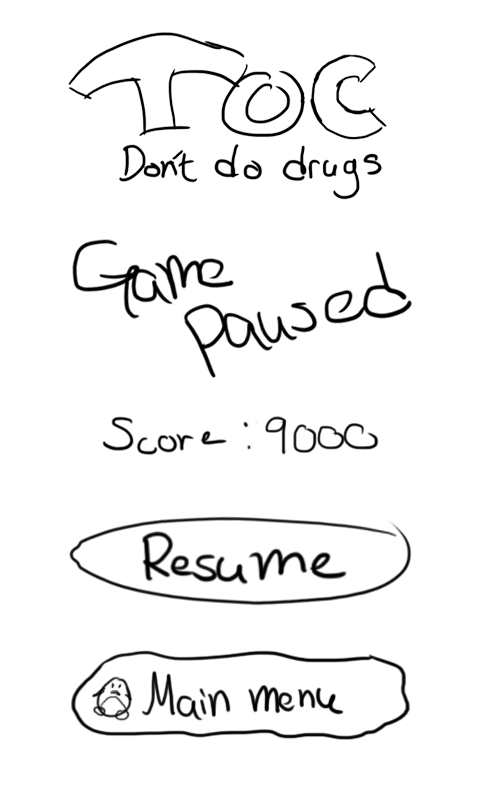 TOC
Don't do drugs
Game
paused
Score: 9000
Resume
Main menu